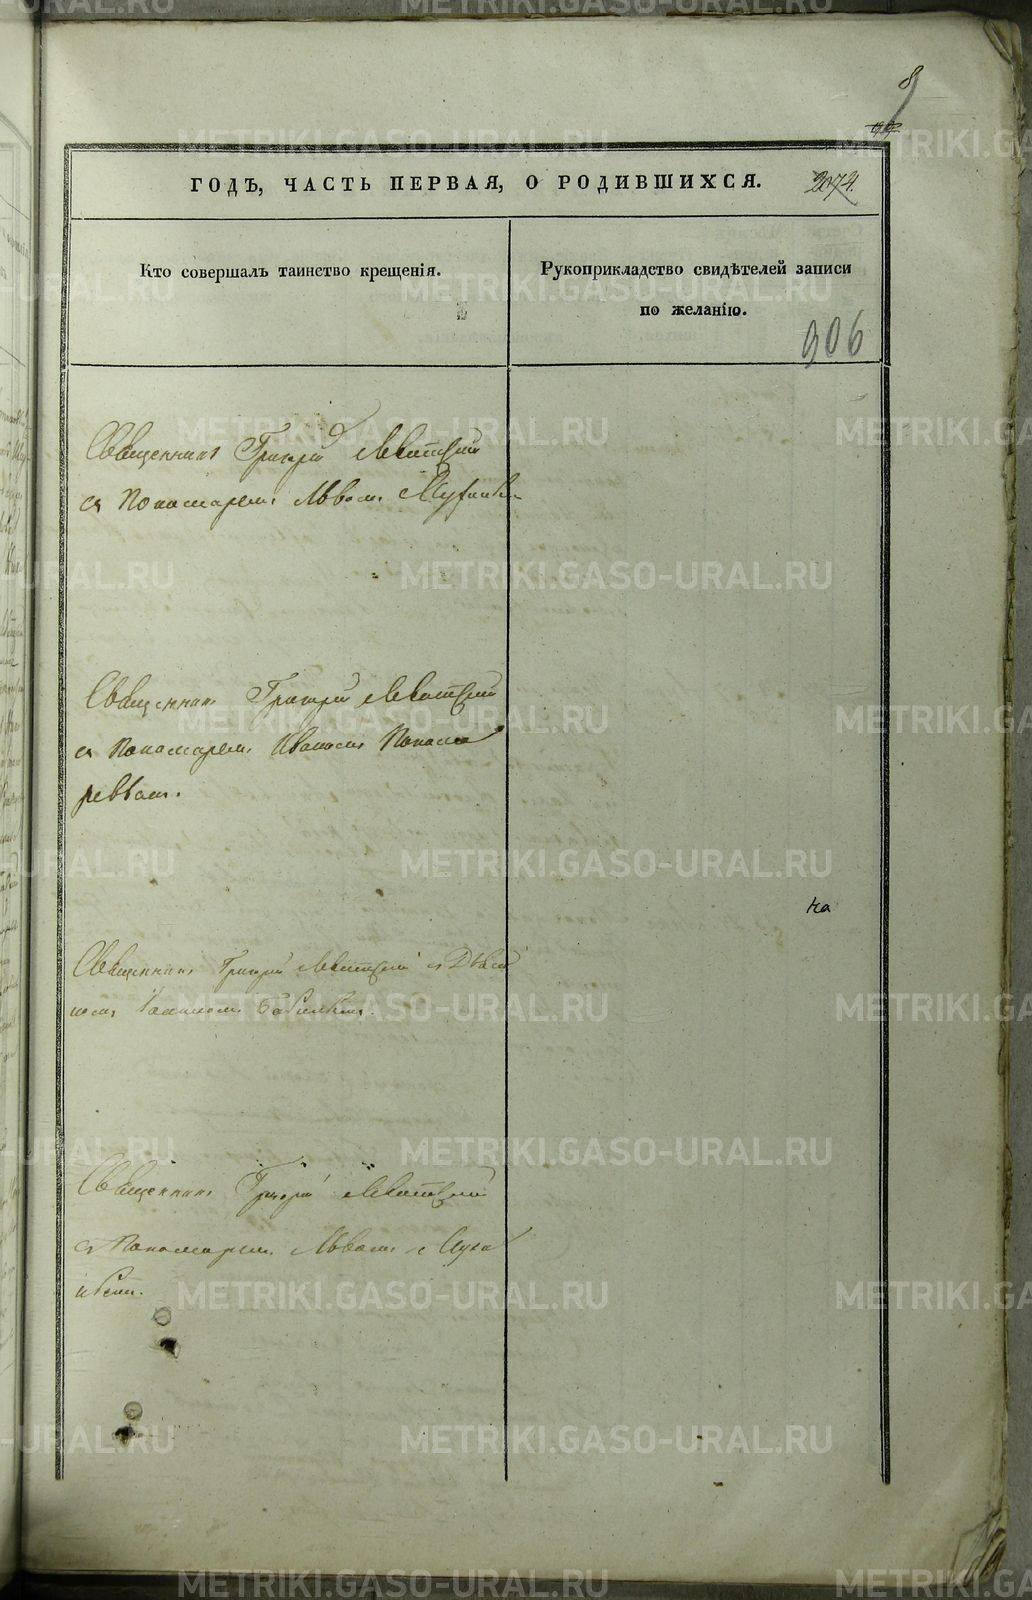 8
ГОДЪ, ЧАСТЬ ПЕРВАЯ, О РОДИВШИХСЯ.
Кто совершалъ таинство крещенія.
Рукоприкладство свидѣтелей записи
по желанію.
906
Священникъ Григорій Левитскій
съ Пономаремъ Львомъ
Священникъ Григорій Левитскій
съ Пономаремъ Иваномъ Понома
ревымъ.
Священникъ Григорій Левитскій съ
Священникъ Григорій Левитскій
съ Пономаремъ Львомъ
на
METRIKI.GASO-URAL.RU